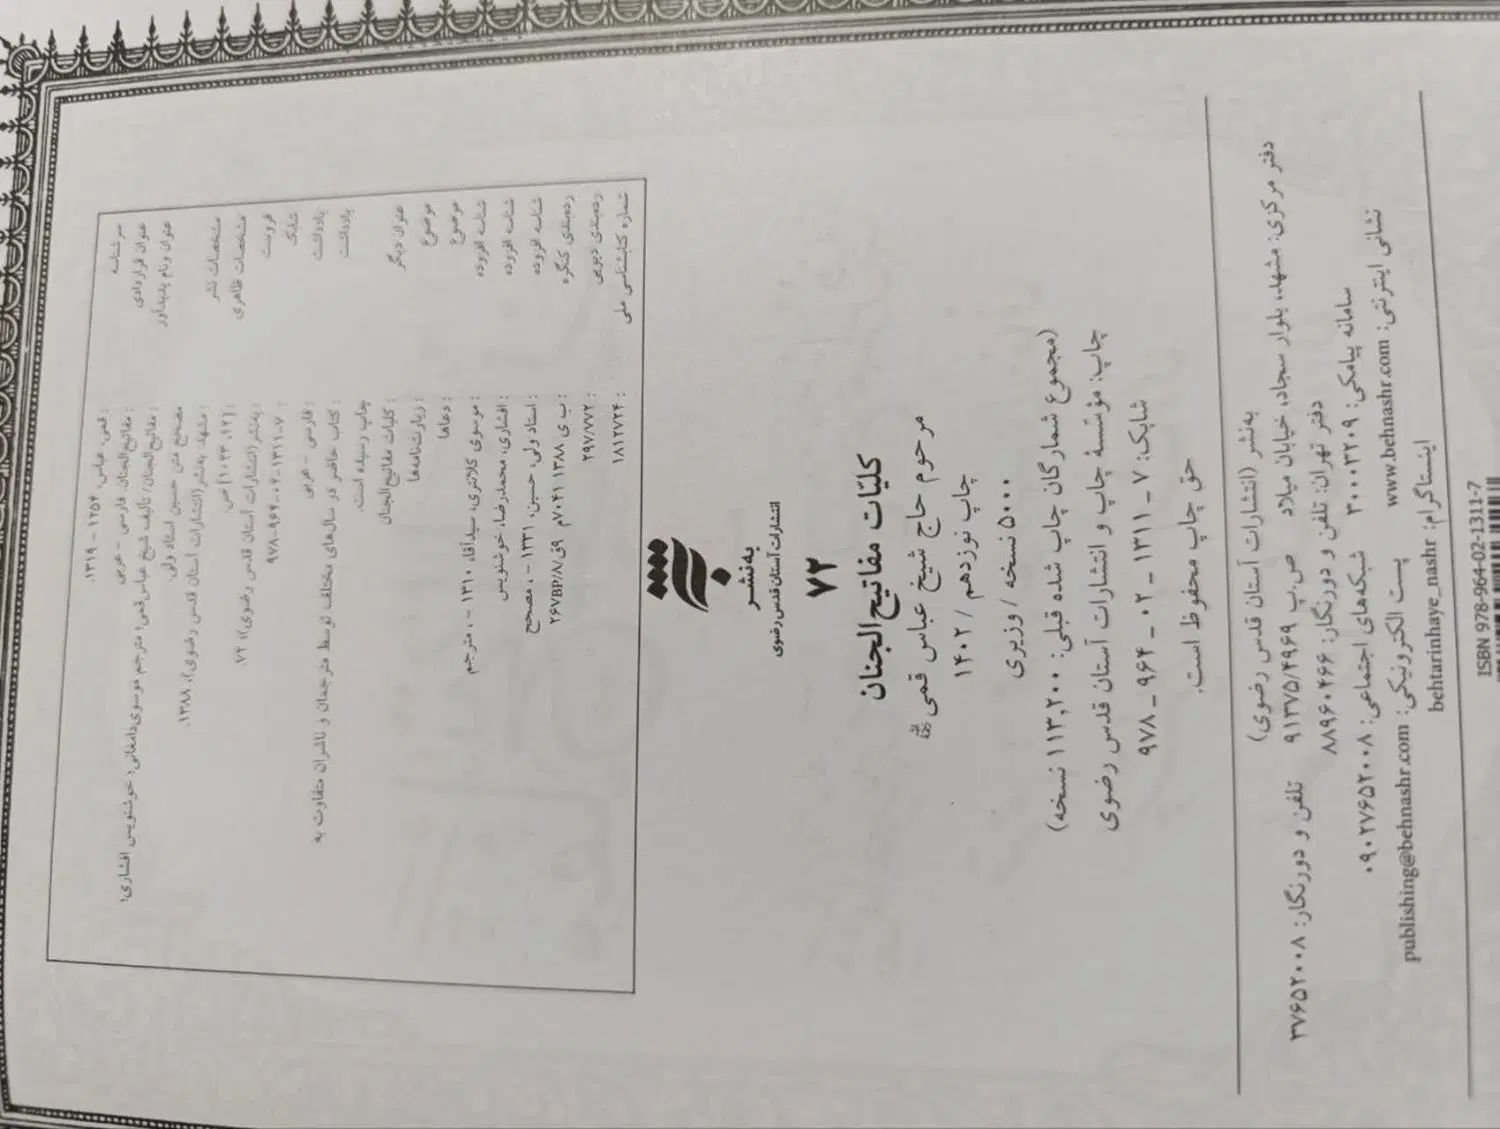 سرشناسه : قمی، عباس، ۱۲۵۴ - ۱۳۱۹.
عنوان قراردادی : مفاتیح‌الجنان. فارسی - عربی
عنوان و نام پدیدآور : مفاتیح‌الجنان/ تألیف شیخ عباس قمی؛ مترجم موسوی‌دامغانی؛ خوشنویس افشاری؛
مصحح متن حسین استاد ولی.
مشخصات نشر : مشهد: به‌نشر (انتشارات آستان قدس رضوی)، ۱۳۸۸.
مشخصات ظاهری : [۱۲]، ۱۰۲۳ ص.
فروست : به‌نشر (انتشارات آستان قدس رضوی)؛ ۷۲.
شابک : ۹۷۸-۹۶۴-۰۲-۱۳۱۱-۷
یادداشت : فارسی - عربی
یادداشت : کتاب حاضر در سال‌های مختلف توسط مترجمان و ناشران متفاوت به
چاپ رسیده است.
عنوان دیگر : کلیات مفاتیح‌الجنان
موضوع : زیارت‌نامه‌ها
موضوع : دعاها
شناسه افزوده : موسوی کلانتری، سیدآقا، ۱۳۱۰ - ، مترجم
شناسه افزوده : افشاری، محمدرضا، خوشنویس
شناسه افزوده : استاد ولی، حسین، ۱۳۳۱ - ، مصحح
رده‌بندی کنگره
رده‌بندی دیویی : ۲۹۷/۷۷۲
شماره کتابشناسی ملی : ۱۸۱۲۷۲۴
به‌نشر
انتشارات آستان قدس رضوی
۷۲
کلیات مفاتیح‌الجنان
مرحوم حاج شیخ عباس قمی
چاپ نوزدهم / ۱۴۰۲
۵۰۰۰ نسخه / وزیری
(مجموع شمارگان چاپ شده قبلی: ۱۱۳,۲۰۰ نسخه)
چاپ: مؤسسهٔ چاپ و انتشارات آستان قدس رضوی
شابک: ۷ ـ ۱۳۱۱ ـ ۰۲ ـ ۹۶۴ ـ ۹۷۸
حق چاپ محفوظ است.
به‌نشر (انتشارات آستان قدس رضوی)
دفتر مرکزی: مشهد، بلوار سجاد، خیابان میلاد ص.پ ۹۱۳۷۵/۴۹۶۹ تلفن و دورنگار: ۳۷۶۵۲۰۰۸
دفتر تهران: تلفن و دورنگار: ۸۸۹۶۰۴۶۶
سامانه پیامکی: ۳۰۰۰۳۲۰۹ شبکه‌های اجتماعی: ۰۹۰۲۷۶۵۲۰۰۸
نشانی اینترنتی: www.behnashr.com پست الکترونیکی: publishing@behnashr.com
اینستاگرام: behtarinhaye_nashr
ISBN 978-964-02-1311-7